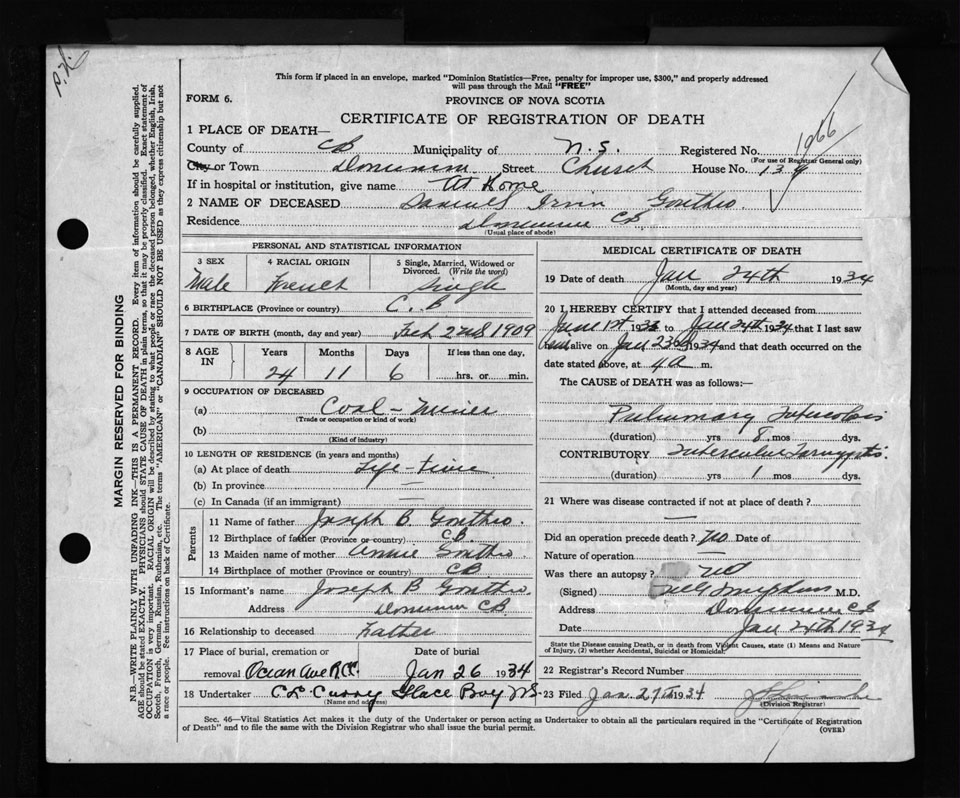 This form if placed in an envelope, marked "Dominion Statistics—Free, penalty for improper use, $300," and properly addressed
will pass through the Mail "FREE"
FORM 6.
PROVINCE OF NOVA SCOTIA
CERTIFICATE OF REGISTRATION OF DEATH
1966
1 PLACE OF DEATH—
County of CB Municipality of N.S. Registered No.
(For use of Registrar General only)
City or Town Dominion Street Church House No. 139
If in hospital or institution, give name At Home
2 NAME OF DECEASED Irvin
Residence Dominion CB
(Usual place of abode)
MARGIN RESERVED FOR BINDING
N.B.—WRITE PLAINLY WITH UNFADING INK—THIS IS A PERMANENT RECORD. Every item of information should be carefully supplied.
AGE should be stated EXACTLY. PHYSICIANS should STATE CAUSE OF DEATH in plain terms, so that it may be properly classified. Exact statement of
OCCUPATION is very important. RACIAL ORIGIN will be described by stating to what people or race the deceased person belonged, whether English, Irish,
Scotch, French, German, Russian, Ruthenian, etc. The terms "AMERICAN" or "CANADIAN" SHOULD NOT BE USED as they express citizenship but not
a race or people. See instructions on back of Certificate.
PERSONAL AND STATISTICAL INFORMATION
3 SEX 4 RACIAL ORIGIN 5 Single, Married, Widowed or
Divorced. (Write the word)
Male French Single
6 BIRTHPLACE (Province or country) C.B
7 DATE OF BIRTH (month, day and year) Feb 2nd 1909
8 AGE IN Years Months Days If less than one day,
24 11 6 hrs. or min.
9 OCCUPATION OF DECEASED
(a) Coal-Miner
(Trade or occupation or kind of work)
(b)
(Kind of industry)
10 LENGTH OF RESIDENCE (in years and months)
(a) At place of death Life-time
(b) In province —
(c) In Canada (if an immigrant) —
Parents
11 Name of father Joseph B
12 Birthplace of father (Province or country) CB
13 Maiden name of mother Annie
14 Birthplace of mother (Province or country) CB
15 Informant's name Joseph B
Address Dominion CB
16 Relationship to deceased Father
17 Place of burial, cremation or Date of burial
removal Ocean Ave R.C. Jan 26 1934
18 Undertaker C L Curry Glace Bay NS
(Name and address)
MEDICAL CERTIFICATE OF DEATH
19 Date of death Jan 24th 1934
(Month, day and year)
20 I HEREBY CERTIFY that I attended deceased from
June 1st 1933 to Jan 24th 1934 that I last saw
him alive on Jan 23rd 1934 and that death occurred on the
date stated above, at 4 a m.
The CAUSE of DEATH was as follows:—
Pulmonary
(duration) yrs 8 mos dys.
CONTRIBUTORY
(duration) yrs 1 mos dys.
21 Where was disease contracted if not at place of death?
—
Did an operation precede death? No. Date of
Nature of operation —
Was there an autopsy? No
(Signed) M.D.
Address Dominion CB
Date Jan 24th 1934
State the Disease causing Death, or in death from Violent Causes, state (1) Means and Nature
of Injury, (2) whether Accidental, Suicidal or Homicidal.
22 Registrar's Record Number
23 Filed Jan 27th 1934
(Division Registrar)
Sec. 46—Vital Statistics Act makes it the duty of the Undertaker or person acting as Undertaker to obtain all the particulars required in the "Certificate of Registration
of Death" and to file the same with the Division Registrar who shall issue the burial permit.
(OVER)